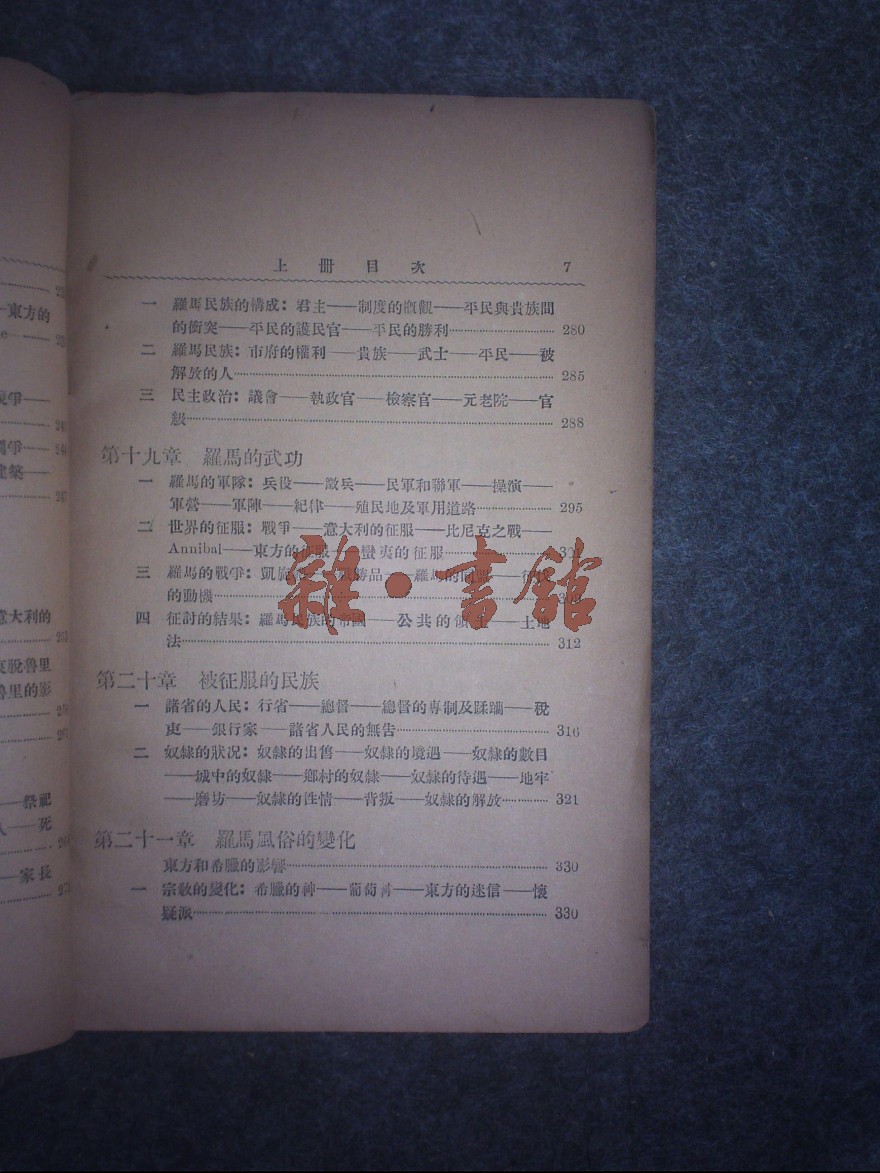 上冊目次 7
一 羅馬民族的構成：君主——制度的概觀——平民與貴族間
的衝突——平民的護民官——平民的勝利 280
二 羅馬民族：市府的權利——貴族——武士——平民——被
解放的人 285
三 民主政治：議會——執政官——檢察官——元老院——官
級 288
第十九章 羅馬的武功
一 羅馬的軍隊：兵役——徵兵——民軍和聯軍——操演——
軍營——軍陣——紀律——殖民地及軍用道路 295
二 世界的征服：戰爭——意大利的征服——比尼克之戰——
Annibal——東方的征服——蠻夷的征服
三 羅馬的戰爭：凱旋
的動機
四 征討的結果：羅馬民族的帝國——公共的——土地
法 312
第二十章 被征服的民族
一 諸省的人民：行省——總督——總督的專制及蹂躪——稅
吏——銀行家——諸省人民的無告 316
二 奴隸的狀况：奴隸的出售——奴隸的境遇——奴隸的數目
——城中的奴隸——鄉村的奴隸——奴隸的待遇——地牢
——磨坊——奴隸的性情——背叛——奴隸的解放 321
第二十一章 羅馬風俗的變化
東方和希臘的影響 330
一 宗教的變化：希臘的神——葡萄——東方的迷信——懷
疑派 330
雜·書館
東方的
建築——
意大利的
魯里
魯里的影
——祭祀
人——死
——家長